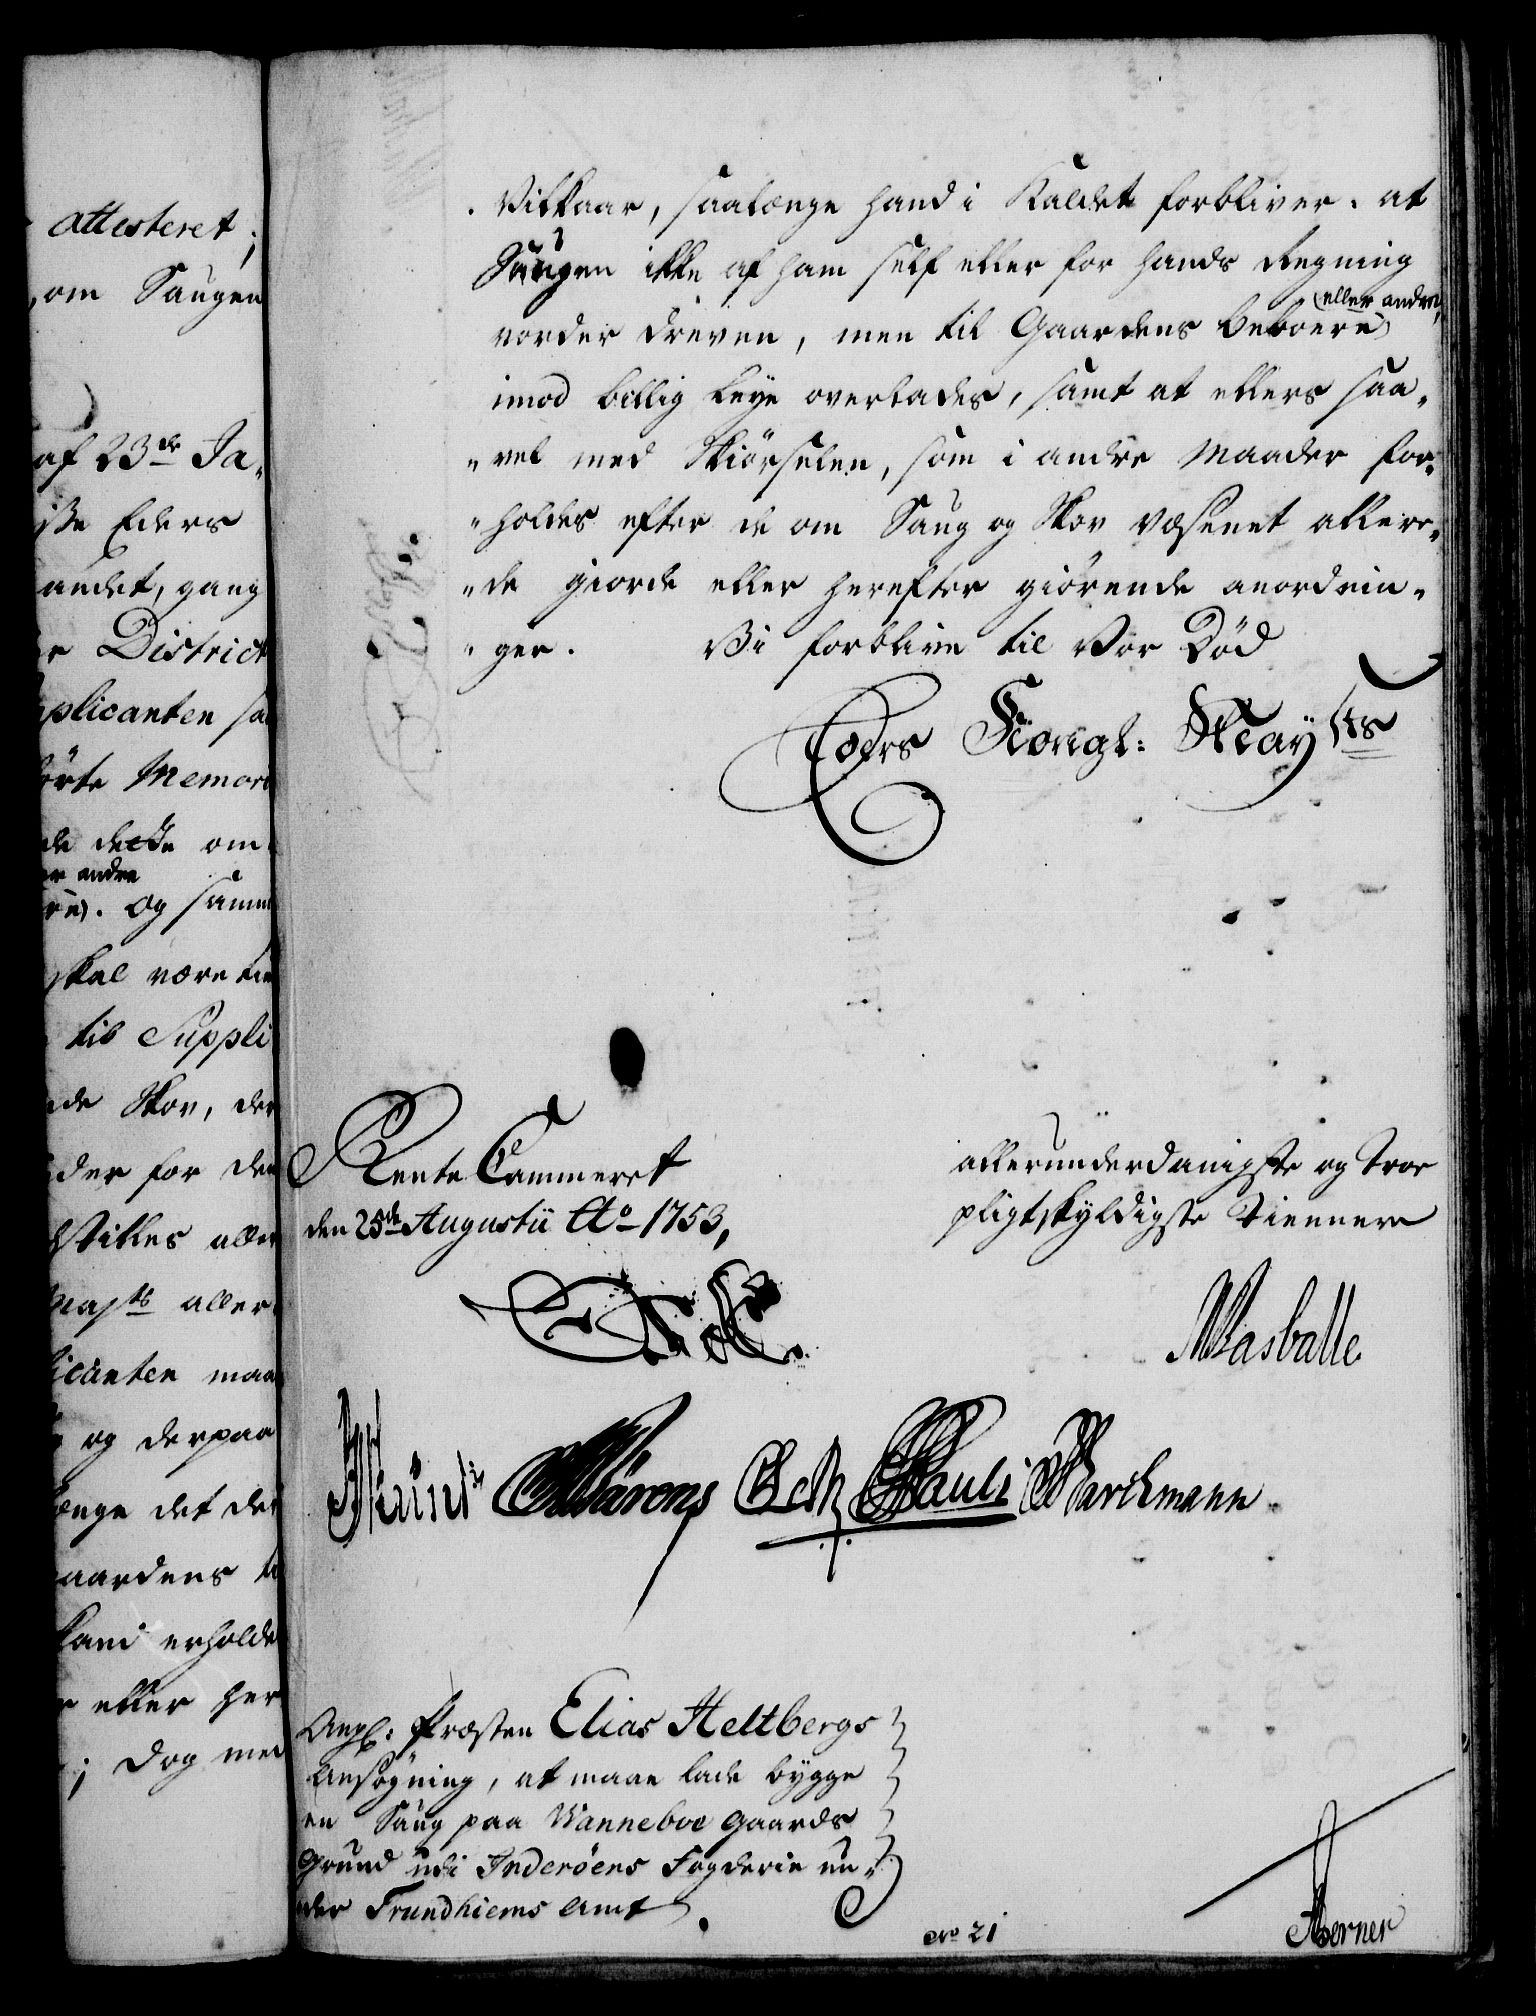 attesteret;
om Saugen
af 23de Ja-
Eders
andet, gang
District
plicanten saa
Memori
andre
. og samme
skal være
til Suppli
Skov, der
der for den
aller
Mays ts aller-
icanten maa
og derpaa
længe det
aardens
erholde
eller her
; dog med
Vilkaar, saalænge hand i Kaldet forbliver. at
Saugen ikke af ham self eller for hands Regning
(eller andre,
vorder dreven, men til Gaardens beboere)
imod billig leye overlades, samt at ellers saa-
"vel med Skiørselen, som i andre Maader for-
"holdes efter de om Saug og Skov væsenet allere-
"de giorde eller herefter giørende anordnin-
"ger. Vi forblive til Vor Død
Eders Kongl: Mayts
Rente Cammeret
den 25de Augustii Ao 1753,
allerunderdanigste og troe
pligtskyldigste Tiennere
Wasballe
Wärens Pauli Barckmann
Ang: Præsten Elias Heltbergs
Ansøgning, at maae lade bygge
en Saug paa Manneboe Gaards
Grund udi Inderøens Fogderie un-
der Trundhiems Amt.
No 21
Berner